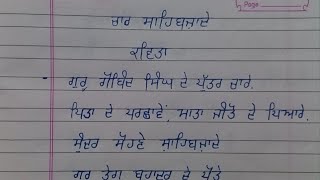 Page
ਚਾਰ ਸਾਹਿਬਜ਼ਾਦੇ
ਕਵਿਤਾ
- ਗੁਰੂ ਗੋਬਿੰਦ ਸਿੰਘ ਦੇ ਪੁੱਤਰ ਚਾਰੇ.
ਪਿਤਾ ਦੇ ਪਰਛਾਵੇਂ, ਮਾਤਾ ਜੀਤੋ ਦੇ ਪਿਆਰੇ.
ਸੁੰਦਰ ਸੋਹਣੇ ਸਾਹਿਬਜ਼ਾਦੇ
ਗੁਰੂ ਤੇਗ ਬਹਾਦਰ ਦੇ ਪੋਤੇ